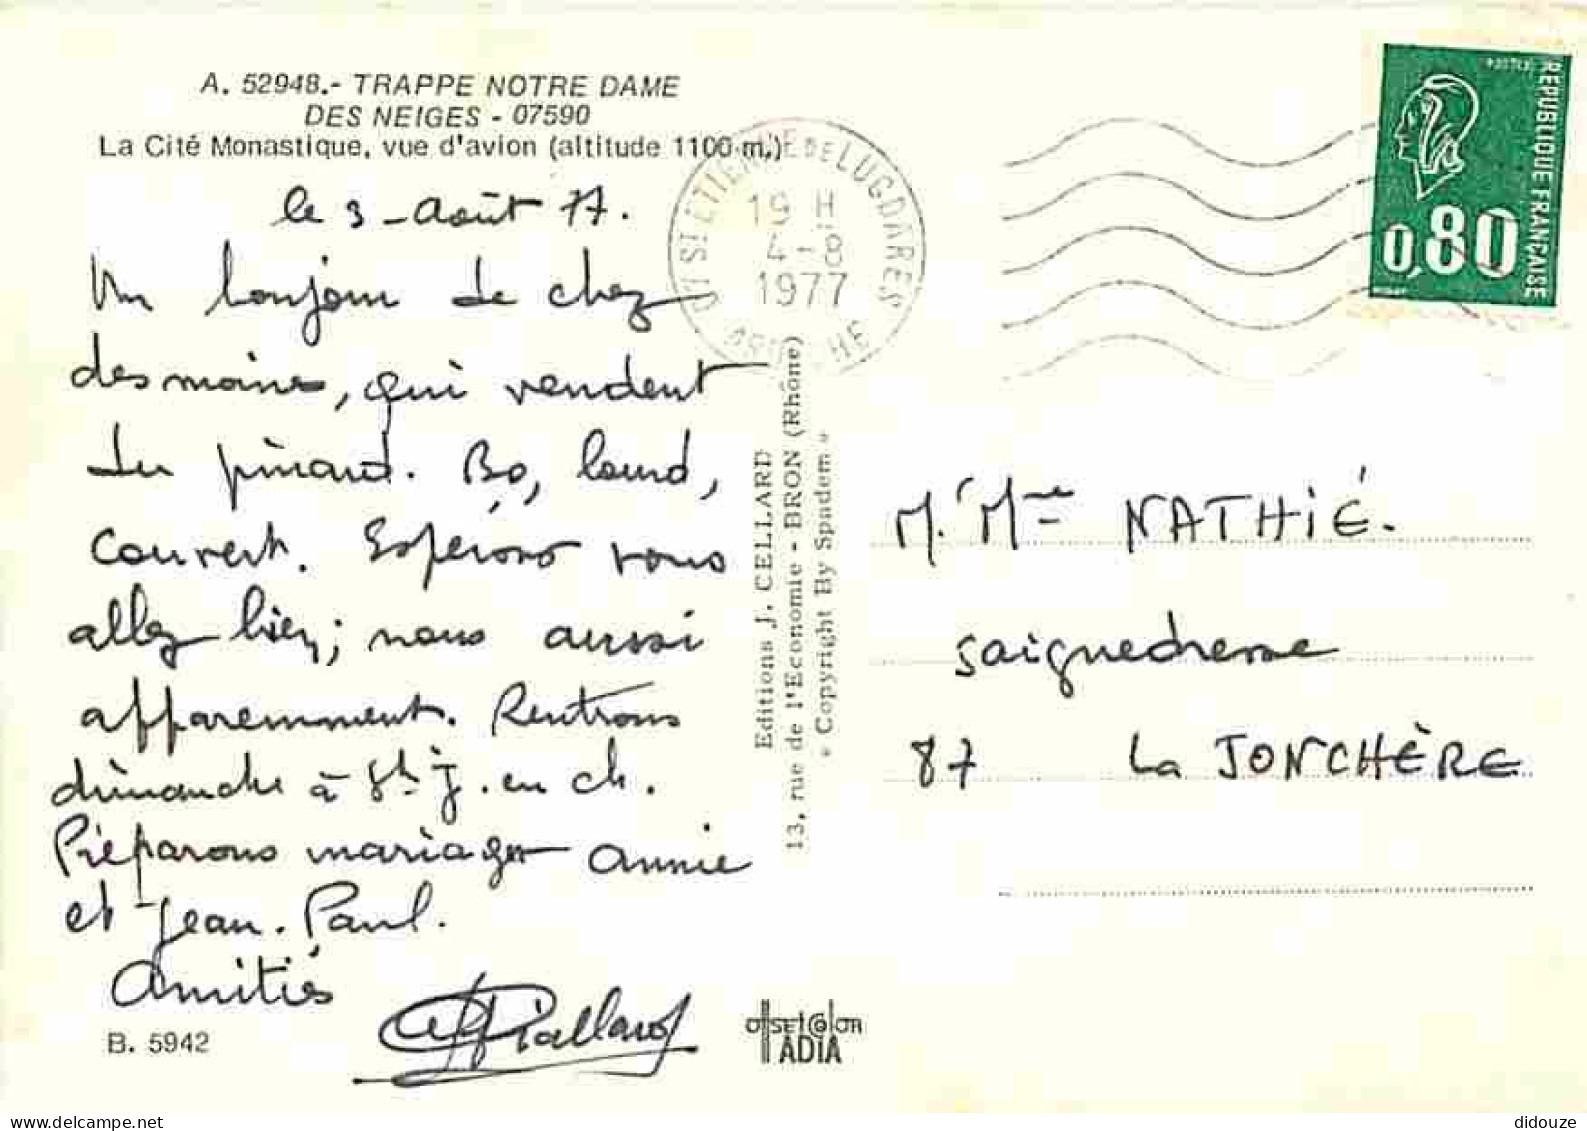 A. 52948.- TRAPPE NOTRE DAME
DES NEIGES - 07590
La Cité Monastique, vue d'avion (altitude 1100 m.)
le 3 - Août 77.
Un bonjour de chez
des moines, qui vendent
du pinard. Bo, lourd,
couvert. Espérons vous
allez bien; nous aussi
apparemment. Rentrons
dimanche à St. J. en ch.
Préparons mariage Annie
et Jean. Paul.
Amitiés
B. 5942
07 ST ETIENNE DE LUGDARES
19 H
4 - 8
1977
ARDECHE
Editions J. CELLARD
13, rue de l'Economie - BRON (Rhône)
« Copyright By Spadem »
POSTES
REPUBLIQUE FRANÇAISE
0,80
M. Mme NATHIÉ.
Saignedresse
87 La JONCHÈRE
OFFSETCOLOR
IADIA
didouze